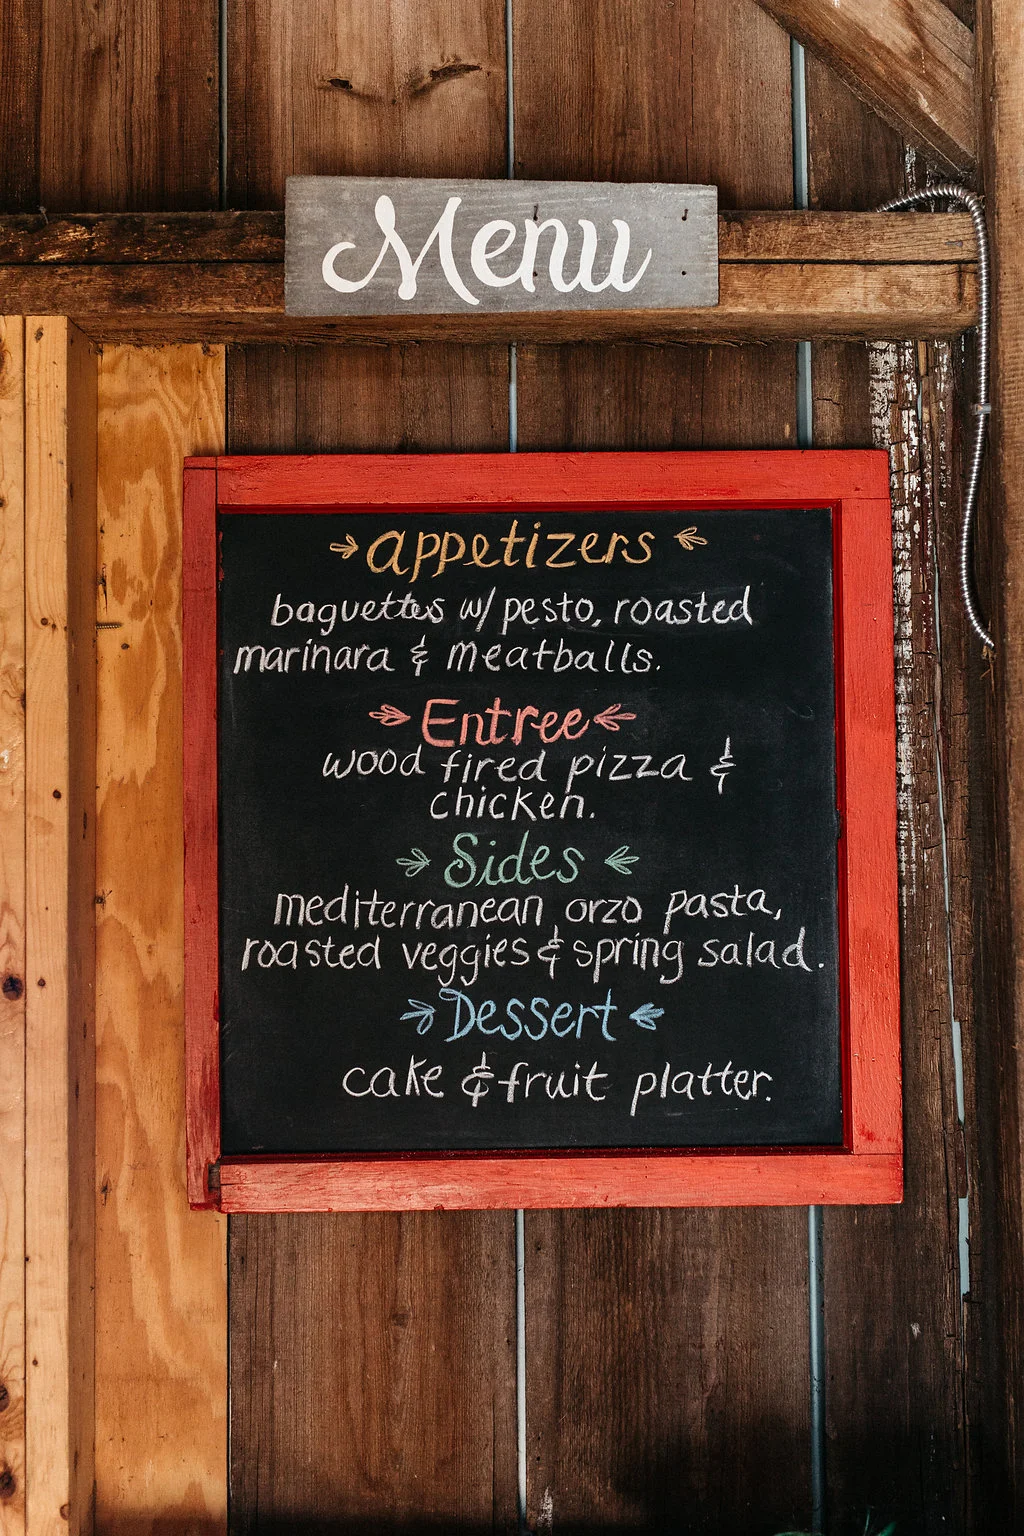 Menu
appetizers
baguettes w/ pesto, roasted
marinara & meatballs.
Entree
wood fired pizza &
chicken.
Sides
mediterranean orzo pasta,
roasted veggies & spring salad.
Dessert
cake & fruit platter.